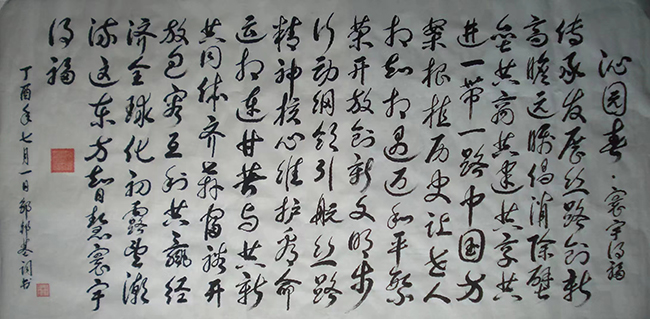 沁园春·寰宇得福
传承发展丝路创新
高瞻远瞩倡消除壁
垒共商共建共享共
进一带一路中国方
案根植历史让世人
相知相遇迈和平繁
荣开放创新文明步
行动纲领引航丝路
精神核心维护命
运相连甘苦与共新
共同体齐奔富裕开
放包容互利共赢经
济全球化初露
流这东方智慧寰宇
得福
丁酉年七月一日邹邦基词书